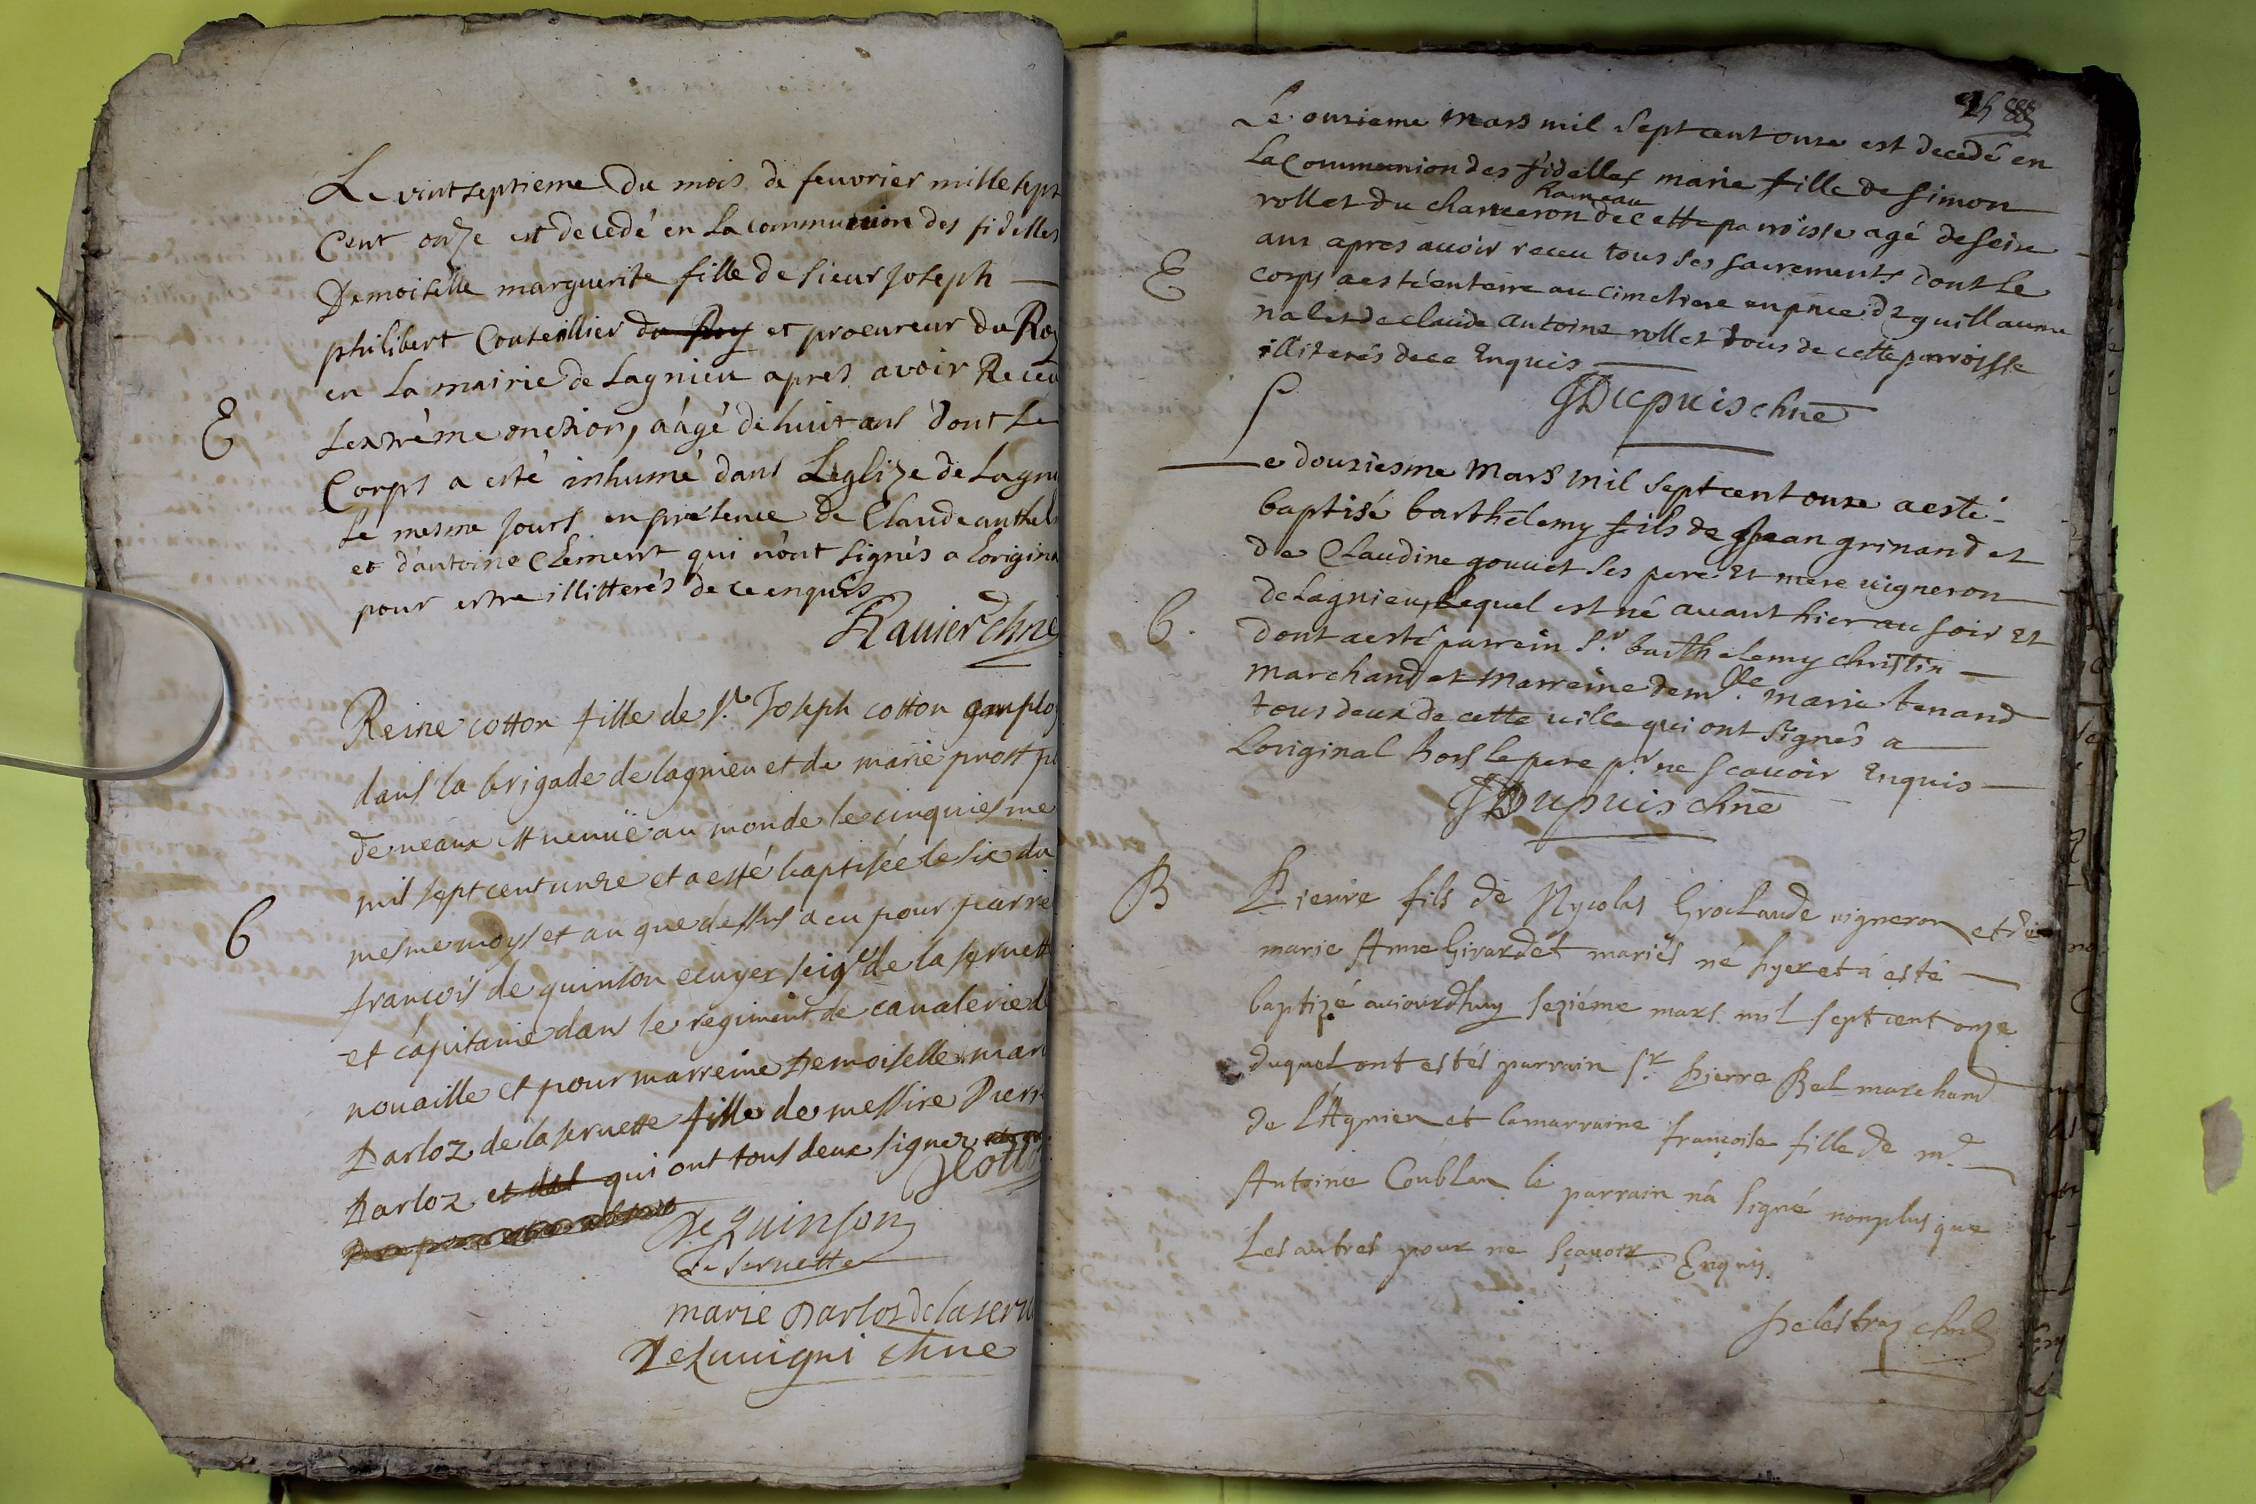 Le vintseptieme du mois de feuvrier mille sept
Cent onze est decedé en La communion des fidelles
Demoiselle marguerite fille de sieur Joseph
philibert Conseillier du Roy et procureur du Roy
en La mairie de Lagnieu apres avoir Receu
E
Lextrême onction, aâgé de huit ans dont Le
Corps a esté inhumé dans Leglize de Lagni
le mesme jours en presence de Claude anthel
et d'antoine Clement qui n'ont signés a Lorigina
pour estre illitterés de ce enquis
Ravier chne
Reine cotton fille de sr Joseph cotton employ
dans la brigade de lagnieu et de marie prost
de veaux est venuë au monde le cinquiesme
mil sept cent unze et a esté baptisée le six du
6
mesme moys et an que dessus a eu pour parrei
françois de quinson ecuyer seigr de la seruett
et capitaine dans le regiment de cavalerie d
novaille et pour marreine Demoiselle mari
Darloz de la seruette fille de messire Pierr
Darloz et dat qui ont tous deux signez
JCotto
De Quinson
de seruette
marie Darlos de la seru
DeLuvigni chne
Le onzieme mars mil sept cent onze est decedé en
La Communion des fidelles marie fille de simon
hameau
rollet du chanceron de cette parroisse agé de seize
ans apres avoir receu tous ses sacrements dont le
E
corps a esté enterre au cimetiere en pnce de guillaume
nalet de claude antoine rollet tous de cette parroisse
illiterés de ce Enquis
JDupuis chne
Le douziesme Mars mil sept cent onze a esté
baptisé barthelemy fils de Jean grinand et
de Claudine gouuet ses pere Et mere uigneron
de Lagnieu, Lequel est né auant hier au soir Et
6.
dont a esté parrein Sr barthelemy christin
marchand et Marreine demlle marie tenand
tous deux de cette uille qui ont signés a
Loriginal hors le pere pr ne scauoir Enquis
JDupuis chne
B
Pierre fils de Nycolas Groclaude vigneron et de
marie Anne Girardet mariés né hyer et a esté
baptizé aujourdhuy seziéme mars mil sept cent onze
duquel ont estés parrain sr Pierre Bel marchand
de LAgnieu et la marraine françoise fille de md
Antoine Coublan le parrain n'a signé nonplus que
Les autres pour ne sçavoir Enquis
Delestraz chne